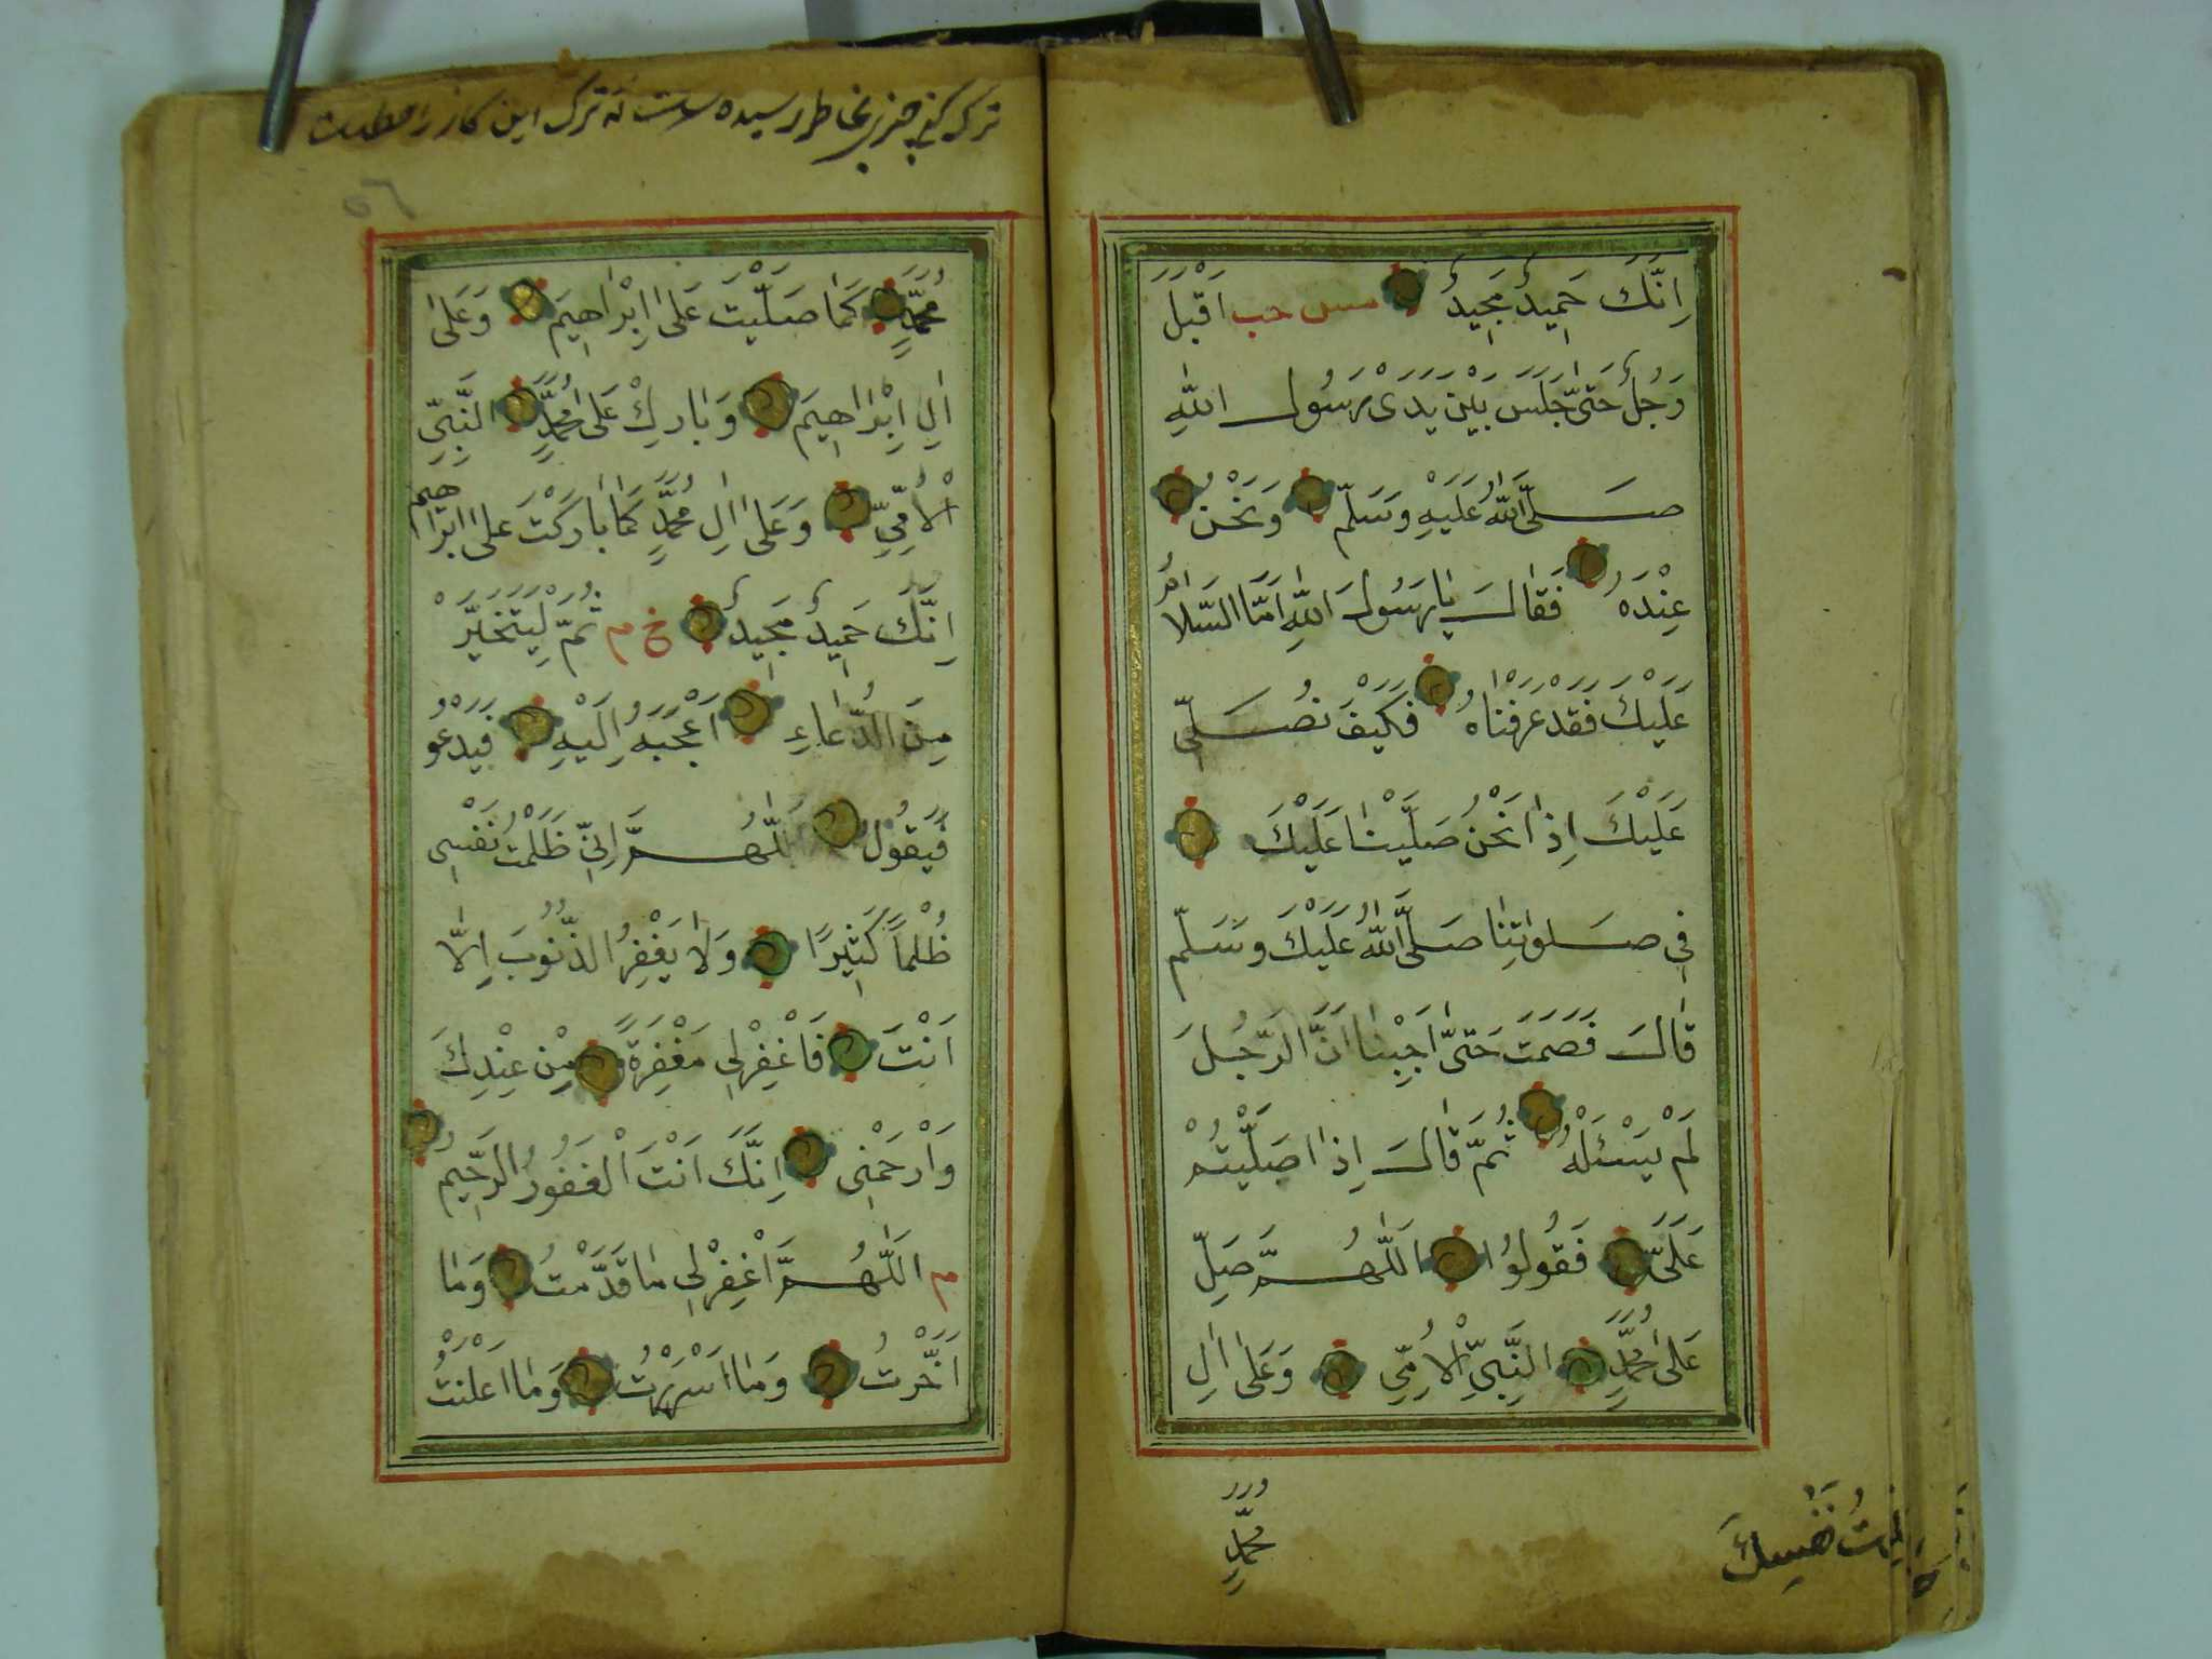 اِنَّكَ حَمِيدٌ مَجِيدٌ مس حب اَقْبَلَ
رَجُلٌ حَتّٰى جَلَسَ بَيْنَ يَدَىْ رَسُولِ اللّٰهِ
صَلَّى اللّٰهُ عَلَيْهِ وَسَلَّمَ وَنَحْنُ
عِنْدَهُ فَقَالَ يَا رَسُولَ اللّٰهِ اَمَّا السَّلَامُ
عَلَيْكَ فَقَدْ عَرَفْنَاهُ فَكَيْفَ نُصَلِّى
عَلَيْكَ اِذَا نَحْنُ صَلَّيْنَا عَلَيْكَ
فِى صَلٰوتِنَا صَلَّى اللّٰهُ عَلَيْكَ وَسَلَّمَ
قَالَ فَصَمَتَ حَتّٰى اَحْبَبْنَا اَنَّ الرَّجُلَ
لَمْ يَسْئَلْهُ ثُمَّ قَالَ اِذَا صَلَّيْتُمْ
عَلَىَّ فَقُولُوا اَللّٰهُمَّ صَلِّ
عَلٰى مُحَمَّدٍ النَّبِىِّ الْاُمِّىِّ وَعَلٰى اٰلِ
مُحَمَّدٍ
نَفْسِكَ
ترك بخاطر رسيده است كه ترك اين كار
٥٦
مُحَمَّدٍ كَمَا صَلَّيْتَ عَلٰى اِبْرَاهِيمَ وَعَلٰى
اٰلِ اِبْرَاهِيمَ وَبَارِكْ عَلٰى مُحَمَّدٍ النَّبِىِّ
الْاُمِّىِّ وَعَلٰى اٰلِ مُحَمَّدٍ كَمَا بَارَكْتَ عَلٰى اِبْرَاهِيمَ
اِنَّكَ حَمِيدٌ مَجِيدٌ خ م ثُمَّ لِيَتَخَيَّرْ
مِنَ الدُّعَاءِ اَعْجَبَهُ اِلَيْهِ فَيَدْعُو
فَيَقُولُ اَللّٰهُمَّ اِنِّى ظَلَمْتُ نَفْسِى
ظُلْمًا كَثِيرًا وَلَا يَغْفِرُ الذُّنُوبَ اِلَّا
اَنْتَ فَاغْفِرْلِى مَغْفِرَةً مِنْ عِنْدِكَ
وَارْحَمْنِى اِنَّكَ اَنْتَ الْغَفُورُ الرَّحِيمُ
م اَللّٰهُمَّ اغْفِرْلِى مَا قَدَّمْتُ وَمَا
اَخَّرْتُ وَمَا اَسْرَرْتُ وَمَا اَعْلَنْتُ